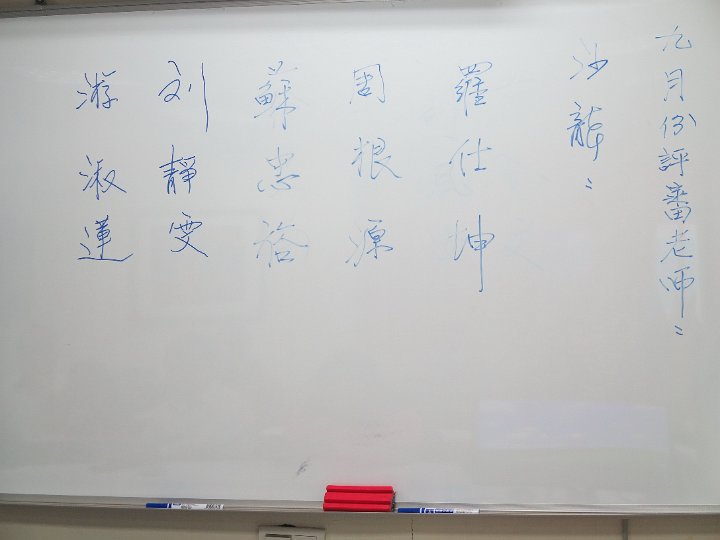 九月份評審老師：
沙龍：
羅仕坤
周根源
蘇忠裕
刘靜雯
游淑蓮